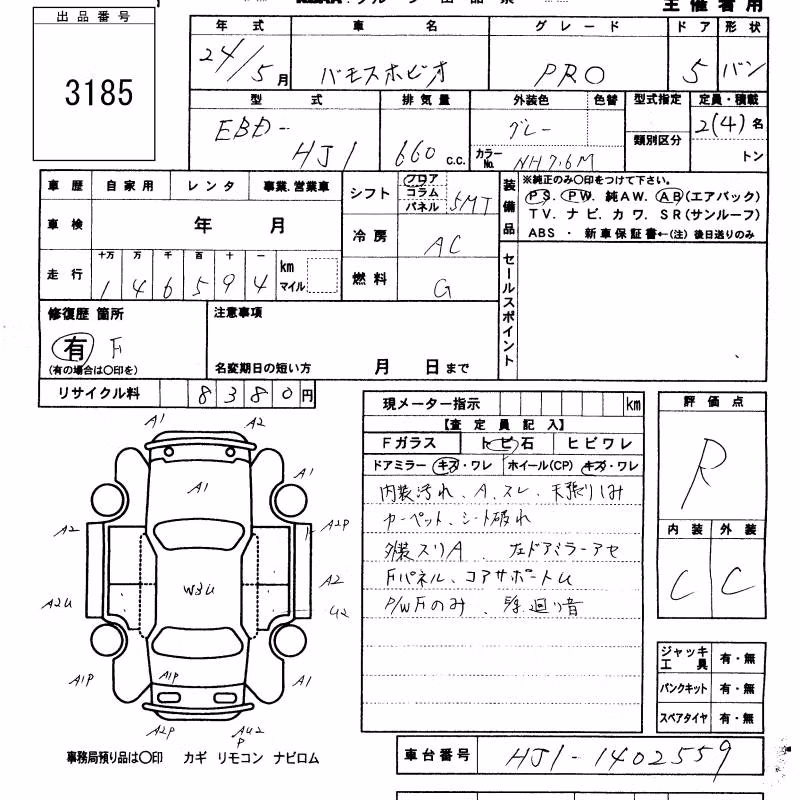 出品番号
3185
主催者用
年式 車名 グレード ドア 形状
24/5月 バモスホビオ PRO 5 バン
型式 排気量 外装色 色替 型式指定 定員・積載
EBD- HJ1 660 c.c. グレー 類別区分 2(4)名
カラーNo. NH7.6M トン
車歴 自家用 レンタ 事業.営業車 シフト フロア コラム パネル 5MT
車検 年 月 冷房 AC
走行 十万 万 千 百 十 一 km マイル
1 4 6 5 9 4 燃料 G
装備品 ※純正のみ〇印をつけて下さい。
PS. PW. 純AW. AB(エアバック)
TV. ナビ. カワ. SR(サンルーフ)
ABS ・ 新車保証書←(注) 後日送りのみ
セールスポイント
修復歴 箇所
有 F
(有の場合は〇印を)
注意事項
名変期日の短い方 月 日まで
リサイクル料 8380円
現メーター指示 km
【査定員記入】
Fガラス トビ石 ヒビワレ
ドアミラー キズ・ワレ ホイール(CP) キズ・ワレ
内装汚れ、A、スレ、天張りしみ
カーペット、シート破れ
外装スリA 左ドアミラーアセ
Fパネル、コアサポートU
P/WFのみ、廻り音
評価点
R
内装 外装
C C
ジャッキ工具 有・無
パンクキット 有・無
スペアタイヤ 有・無
A1 A2
A1 A1
A2 A2P
W3U A2
A2U U2
A1P A1P A1
A2P AU2P
事務局預り品は〇印 カギ リモコン ナビロム
車台番号 HJ1-1402559